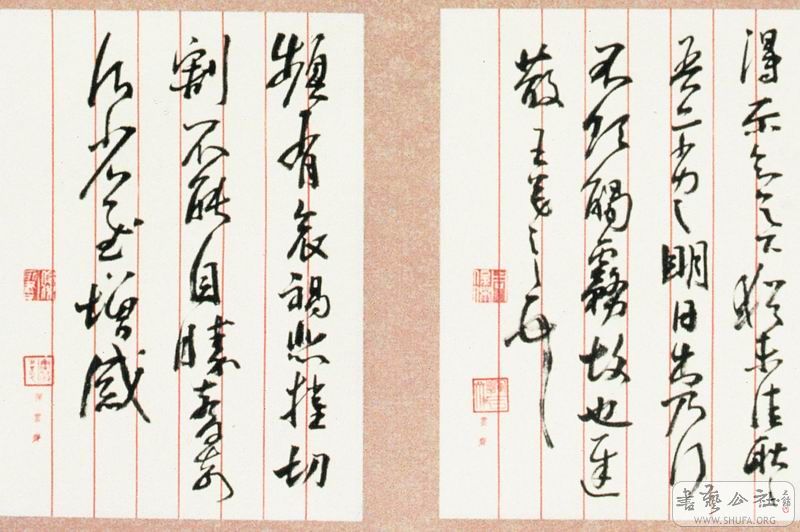 得示知足下猶未佳耿々
吾亦劣々明日出乃行
不欲觸霧故也遲
散王羲之頓首
頻有哀禍悲摧切
割不能自勝奈何
省慰增感
書藝公社
WWW.SHUFA.ORG